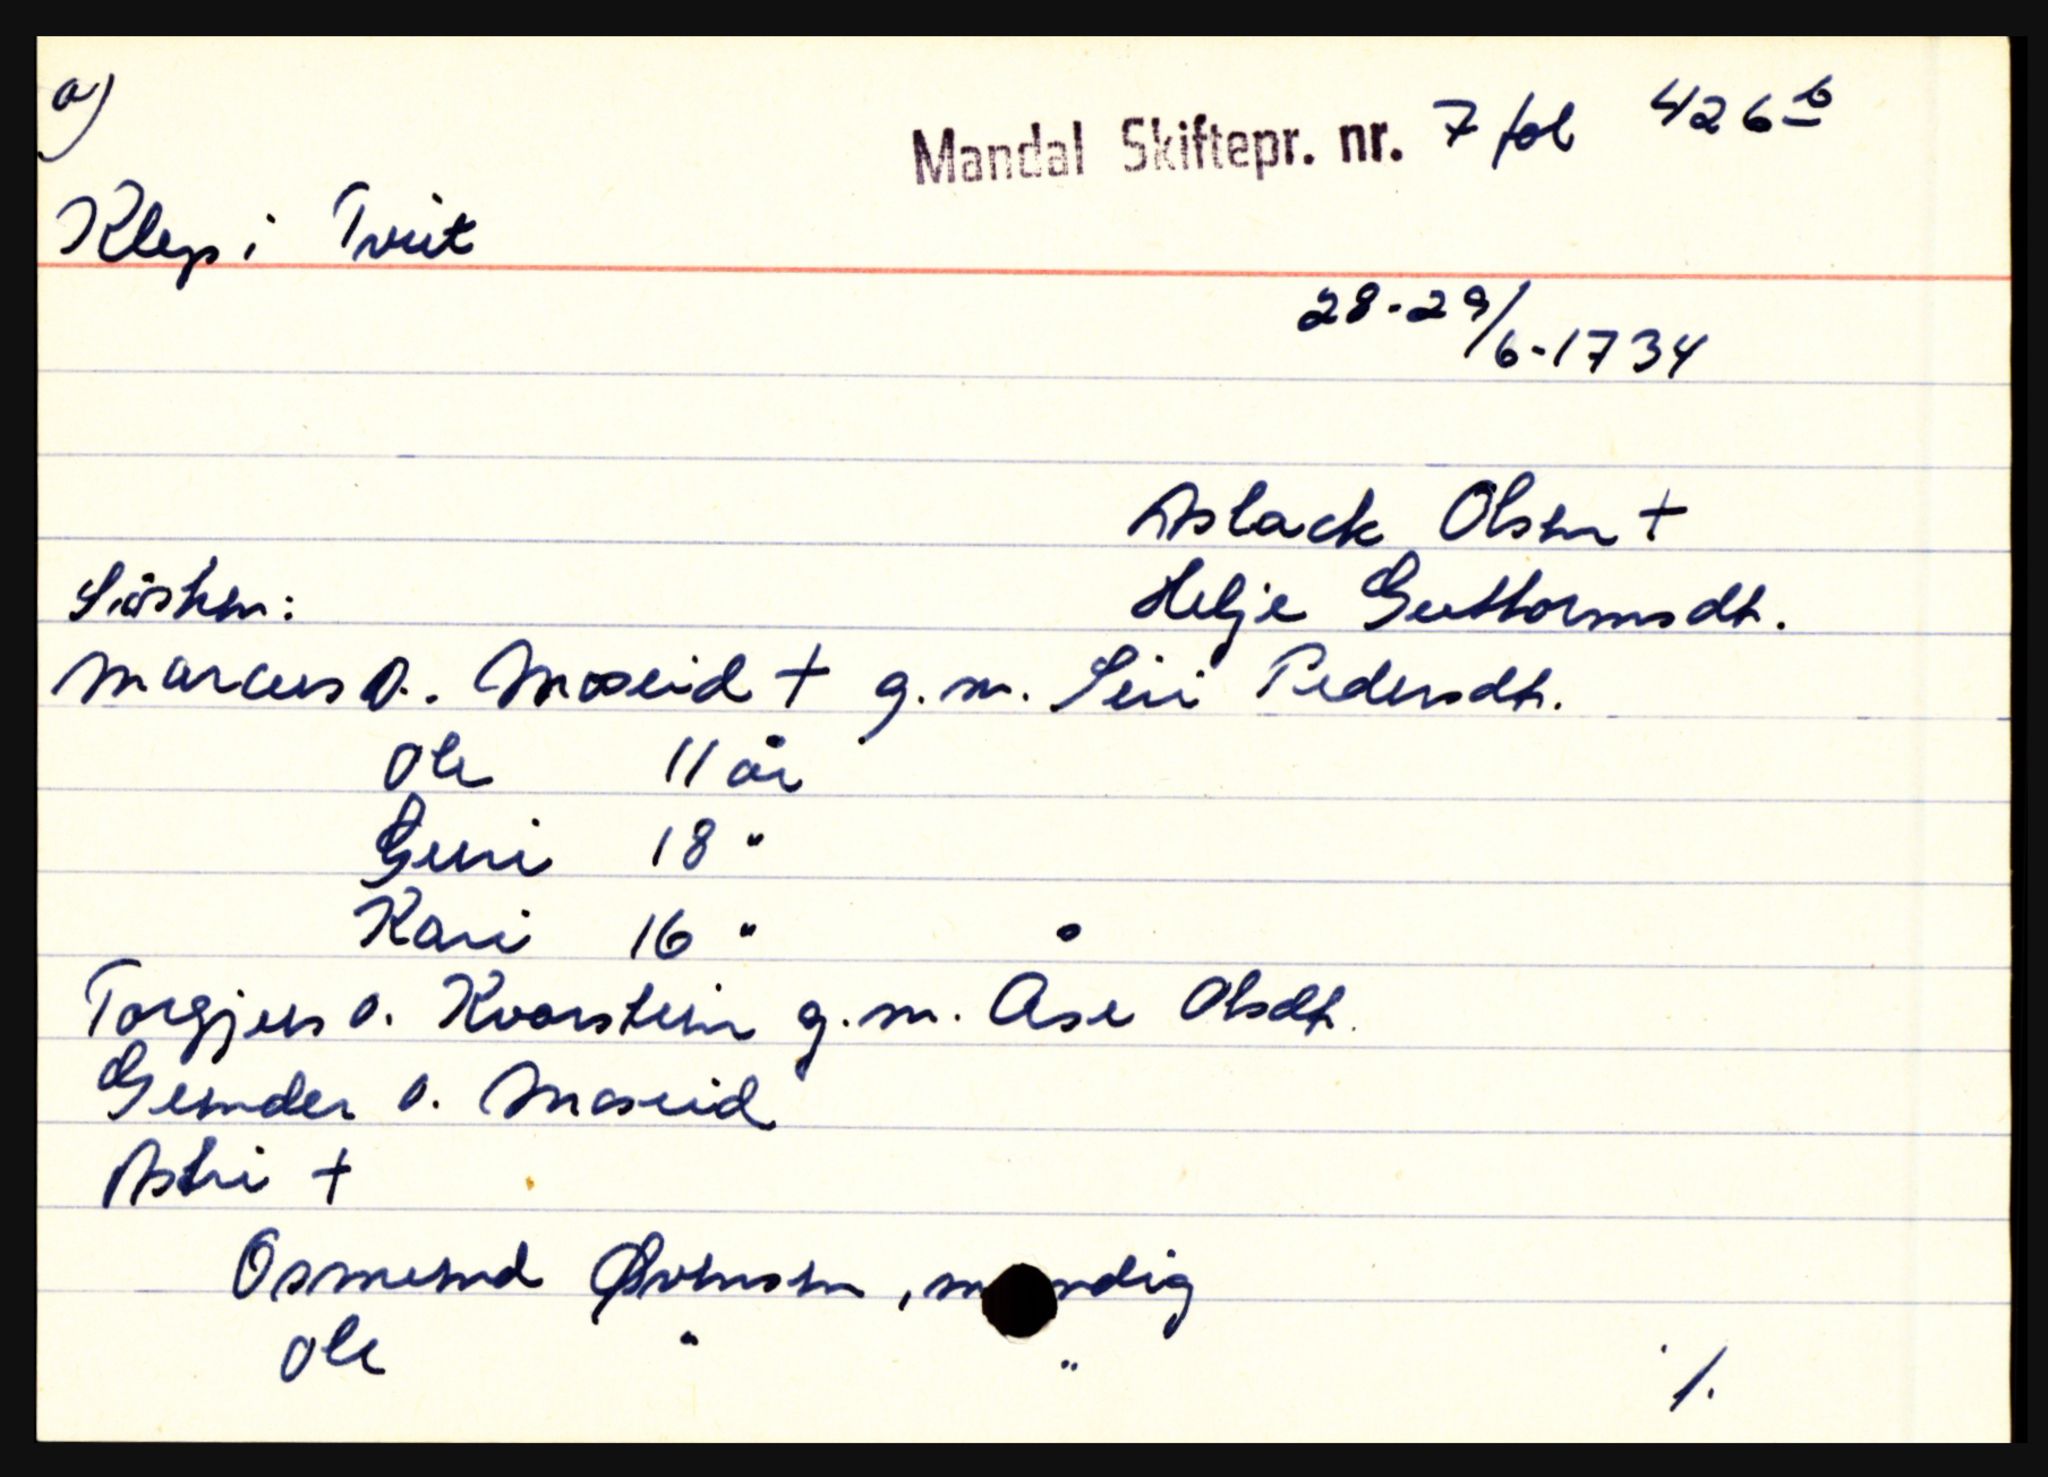 a)
Mandal Skiftepr. nr. 7 fol 426 b
Klep i Tveit
28-29/6-1734
Aslack Olsen +
Søsken: Helje Guttormsdt.
Marcus O. Moseid + g.m. Siri Pedersdt.
Ole 11 år
Guri 18 "
Kari 16 "
Torgjus O. Kvarstein g.m. Åse Olsdt.
Gunder O. Moseid
Astri +
Osmund Øvensen, myndig
Ole " "
./.